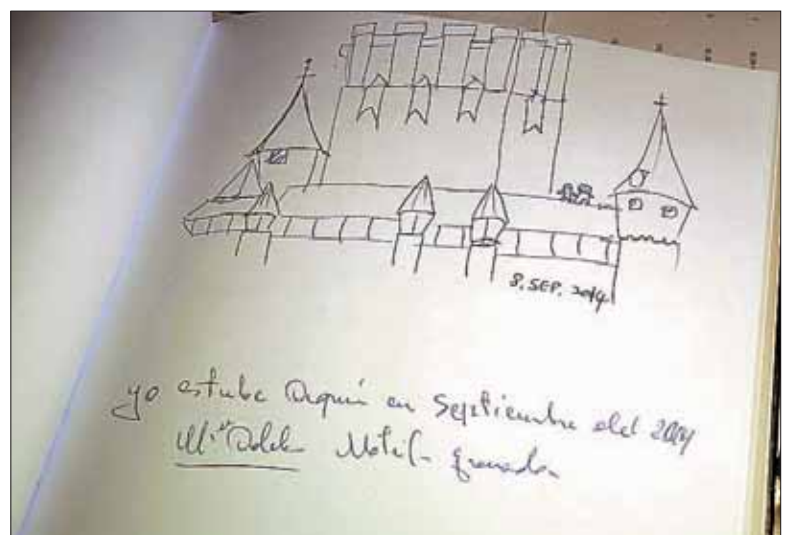 8. SEP. 2014
yo estube Aquí en Septiembre del 2014
Mª Adela Motril - Granada